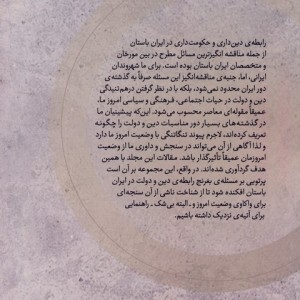 رابطه‌ی دین‌داری و حکومت‌داری در ایران باستان
از جمله مناقشه انگیزترین مسائل مطرح در بین مورخان
و متخصصان ایران باستان بوده است. برای ما شهروندان
ایرانی، اما، جنبه‌ی مناقشه‌انگیز این مسئله صرفاً به گذشته‌ی
دور ایران محدود نمی‌شود، بلکه با در نظر گرفتن درهم‌تنیدگی
دین و دولت در حیات اجتماعی، فرهنگی و سیاسی امروز ما،
عمیقاً مقوله‌ای معاصر محسوب می‌شود. این‌که پیشینیان ما
در گذشته‌های بسیار دور مناسبات دین و دولت را چگونه
تعریف کرده‌اند، لاجرم پیوند تنگاتنگی با وضعیت امروز ما دارد
و لذا آگاهی از آن می‌تواند در سنجش و داوری ما از وضعیت
امروزمان عمیقاً تأثیرگذار باشد. مقالات این مجلد با همین
هدف گردآوری شده‌اند. در واقع، این مجموعه بر آن است
پرتویی بر مسئله‌ی بغرنج رابطه‌ی دین و دولت در ایران
باستان افکنده شود تا از شناخت ناشی از آن سنجه‌ای
برای واکاوی وضعیت امروز و ـ البته بی‌شک ـ راهنمایی
برای آتیه‌ی نزدیک داشته باشیم.